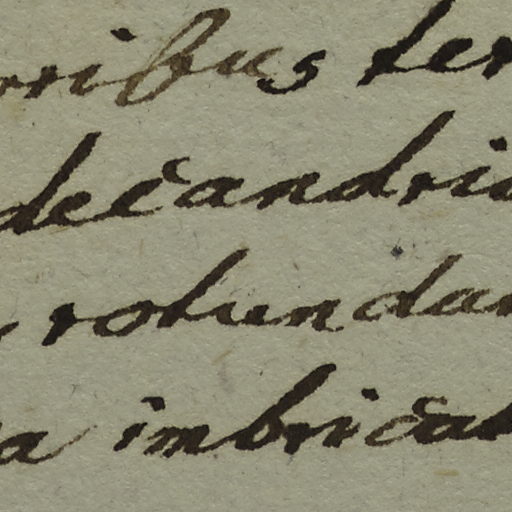 oribus ter
decandri
rotundar
a imbricat